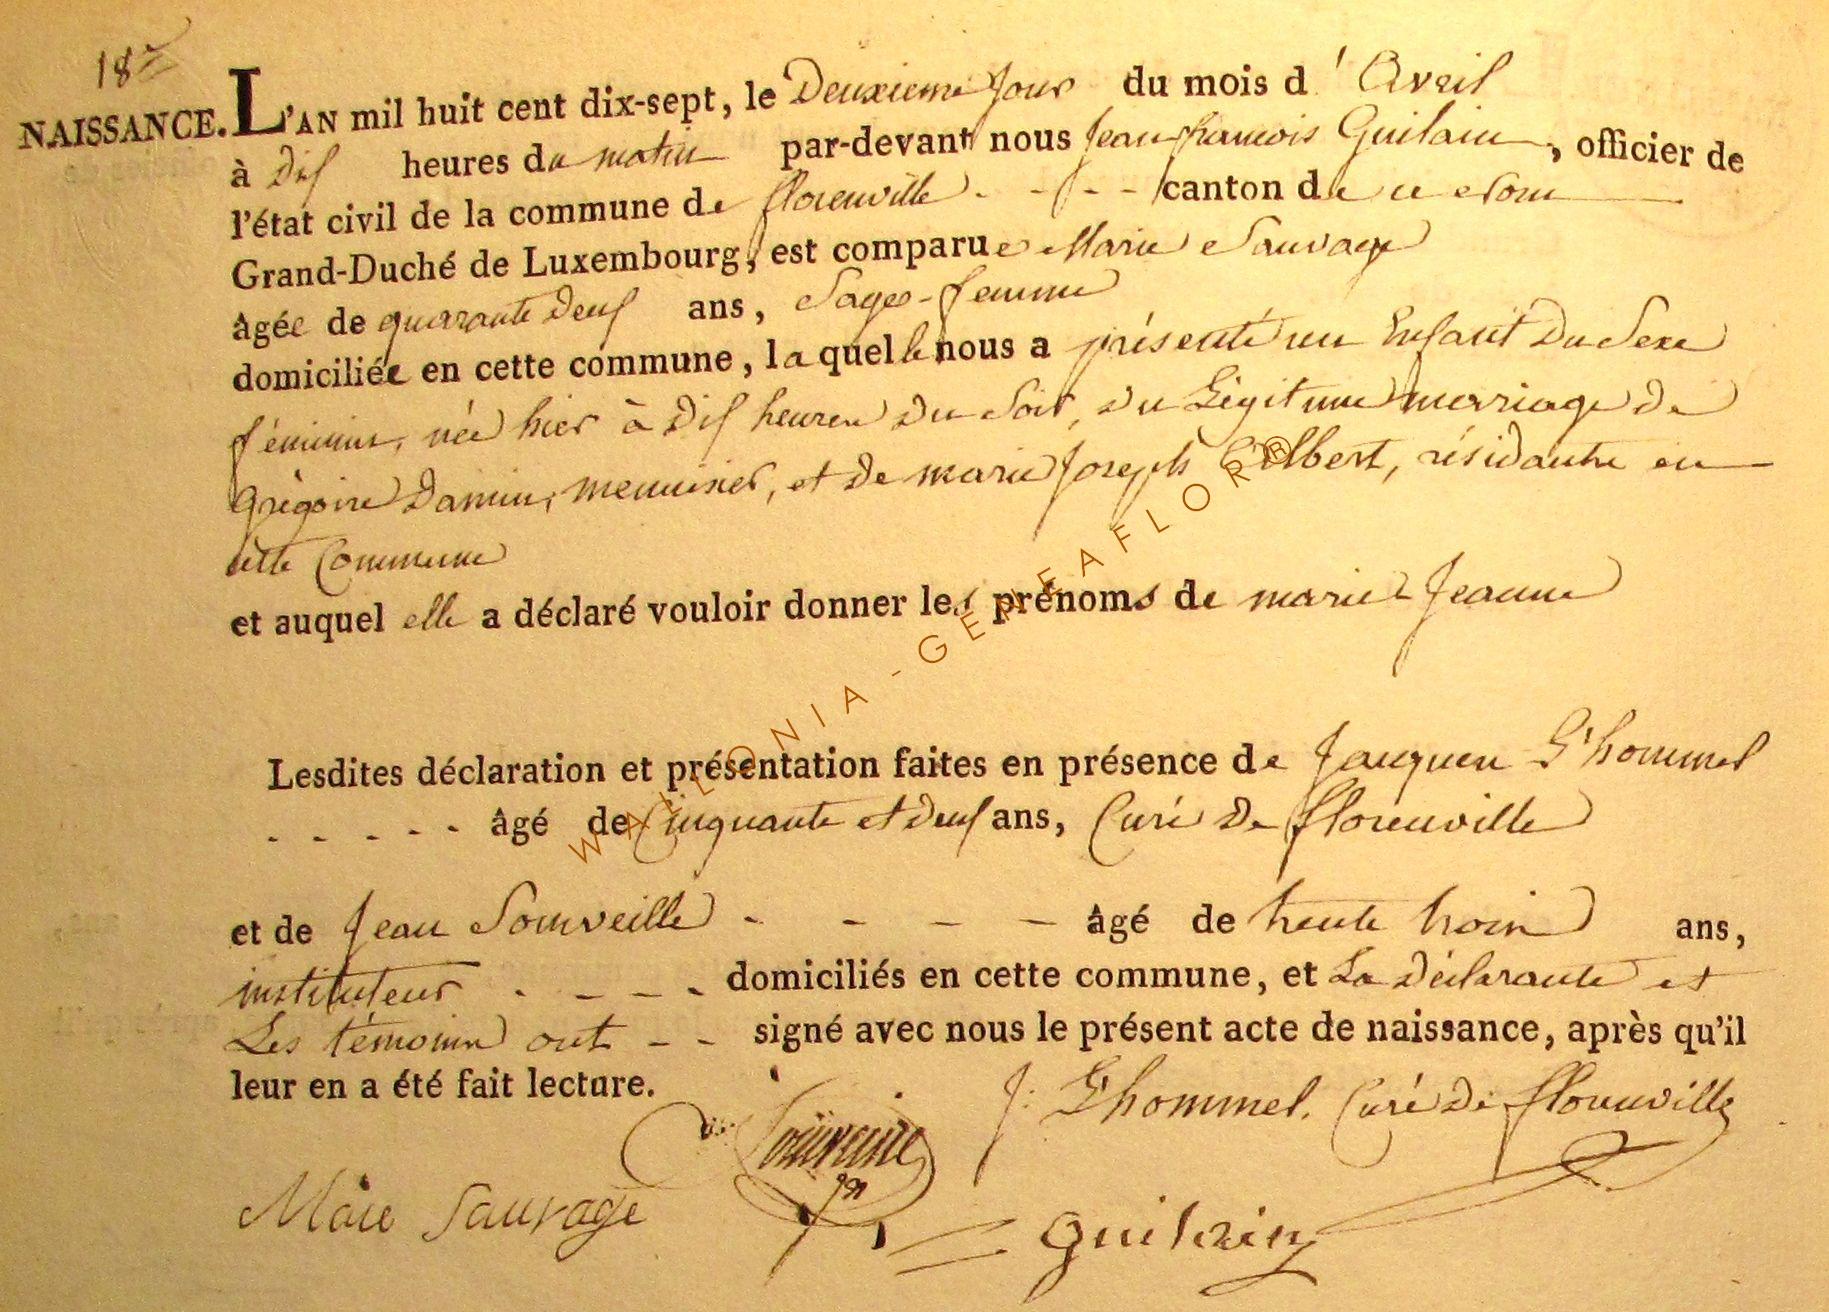 18e
NAISSANCE. L'AN mil huit cent dix-sept, le Deuxieme Jour du mois d'Avril
à Dix heures du matin par-devant nous Jean françois Guilain, officier de
l'état civil de la commune de florenville - - - - canton de ce nom
Grand-Duché de Luxembourg, est comparue Marie Sauvage
âgée de quarante Deux ans, Sage-femme
domiciliée en cette commune, laquelle nous a présenté un Enfant Du Sexe
féminin, née hier à Dix heures Du Soir, Du Légitime mariage de
Grégoire Damin, menuisier, et De marie Joseph Gilbert, résidants en
cette Commune
et auquel elle a déclaré vouloir donner les prénoms de marie Jeanne
Lesdites déclaration et présentation faites en présence de Jacques L'hommel
- - - - - âgé de Cinquante et Deux ans, Curé De florenville
et de Jean Souveille - - - - âgé de trente trois ans,
instituteur - - - - domiciliés en cette commune, et La Déclarante et
Les témoins ont - - signé avec nous le présent acte de naissance, après qu'il
leur en a été fait lecture.
J: L'hommel. Curé De florenville
Marie Sauvage
guilain
WALLONIA-GENEAFLOR®